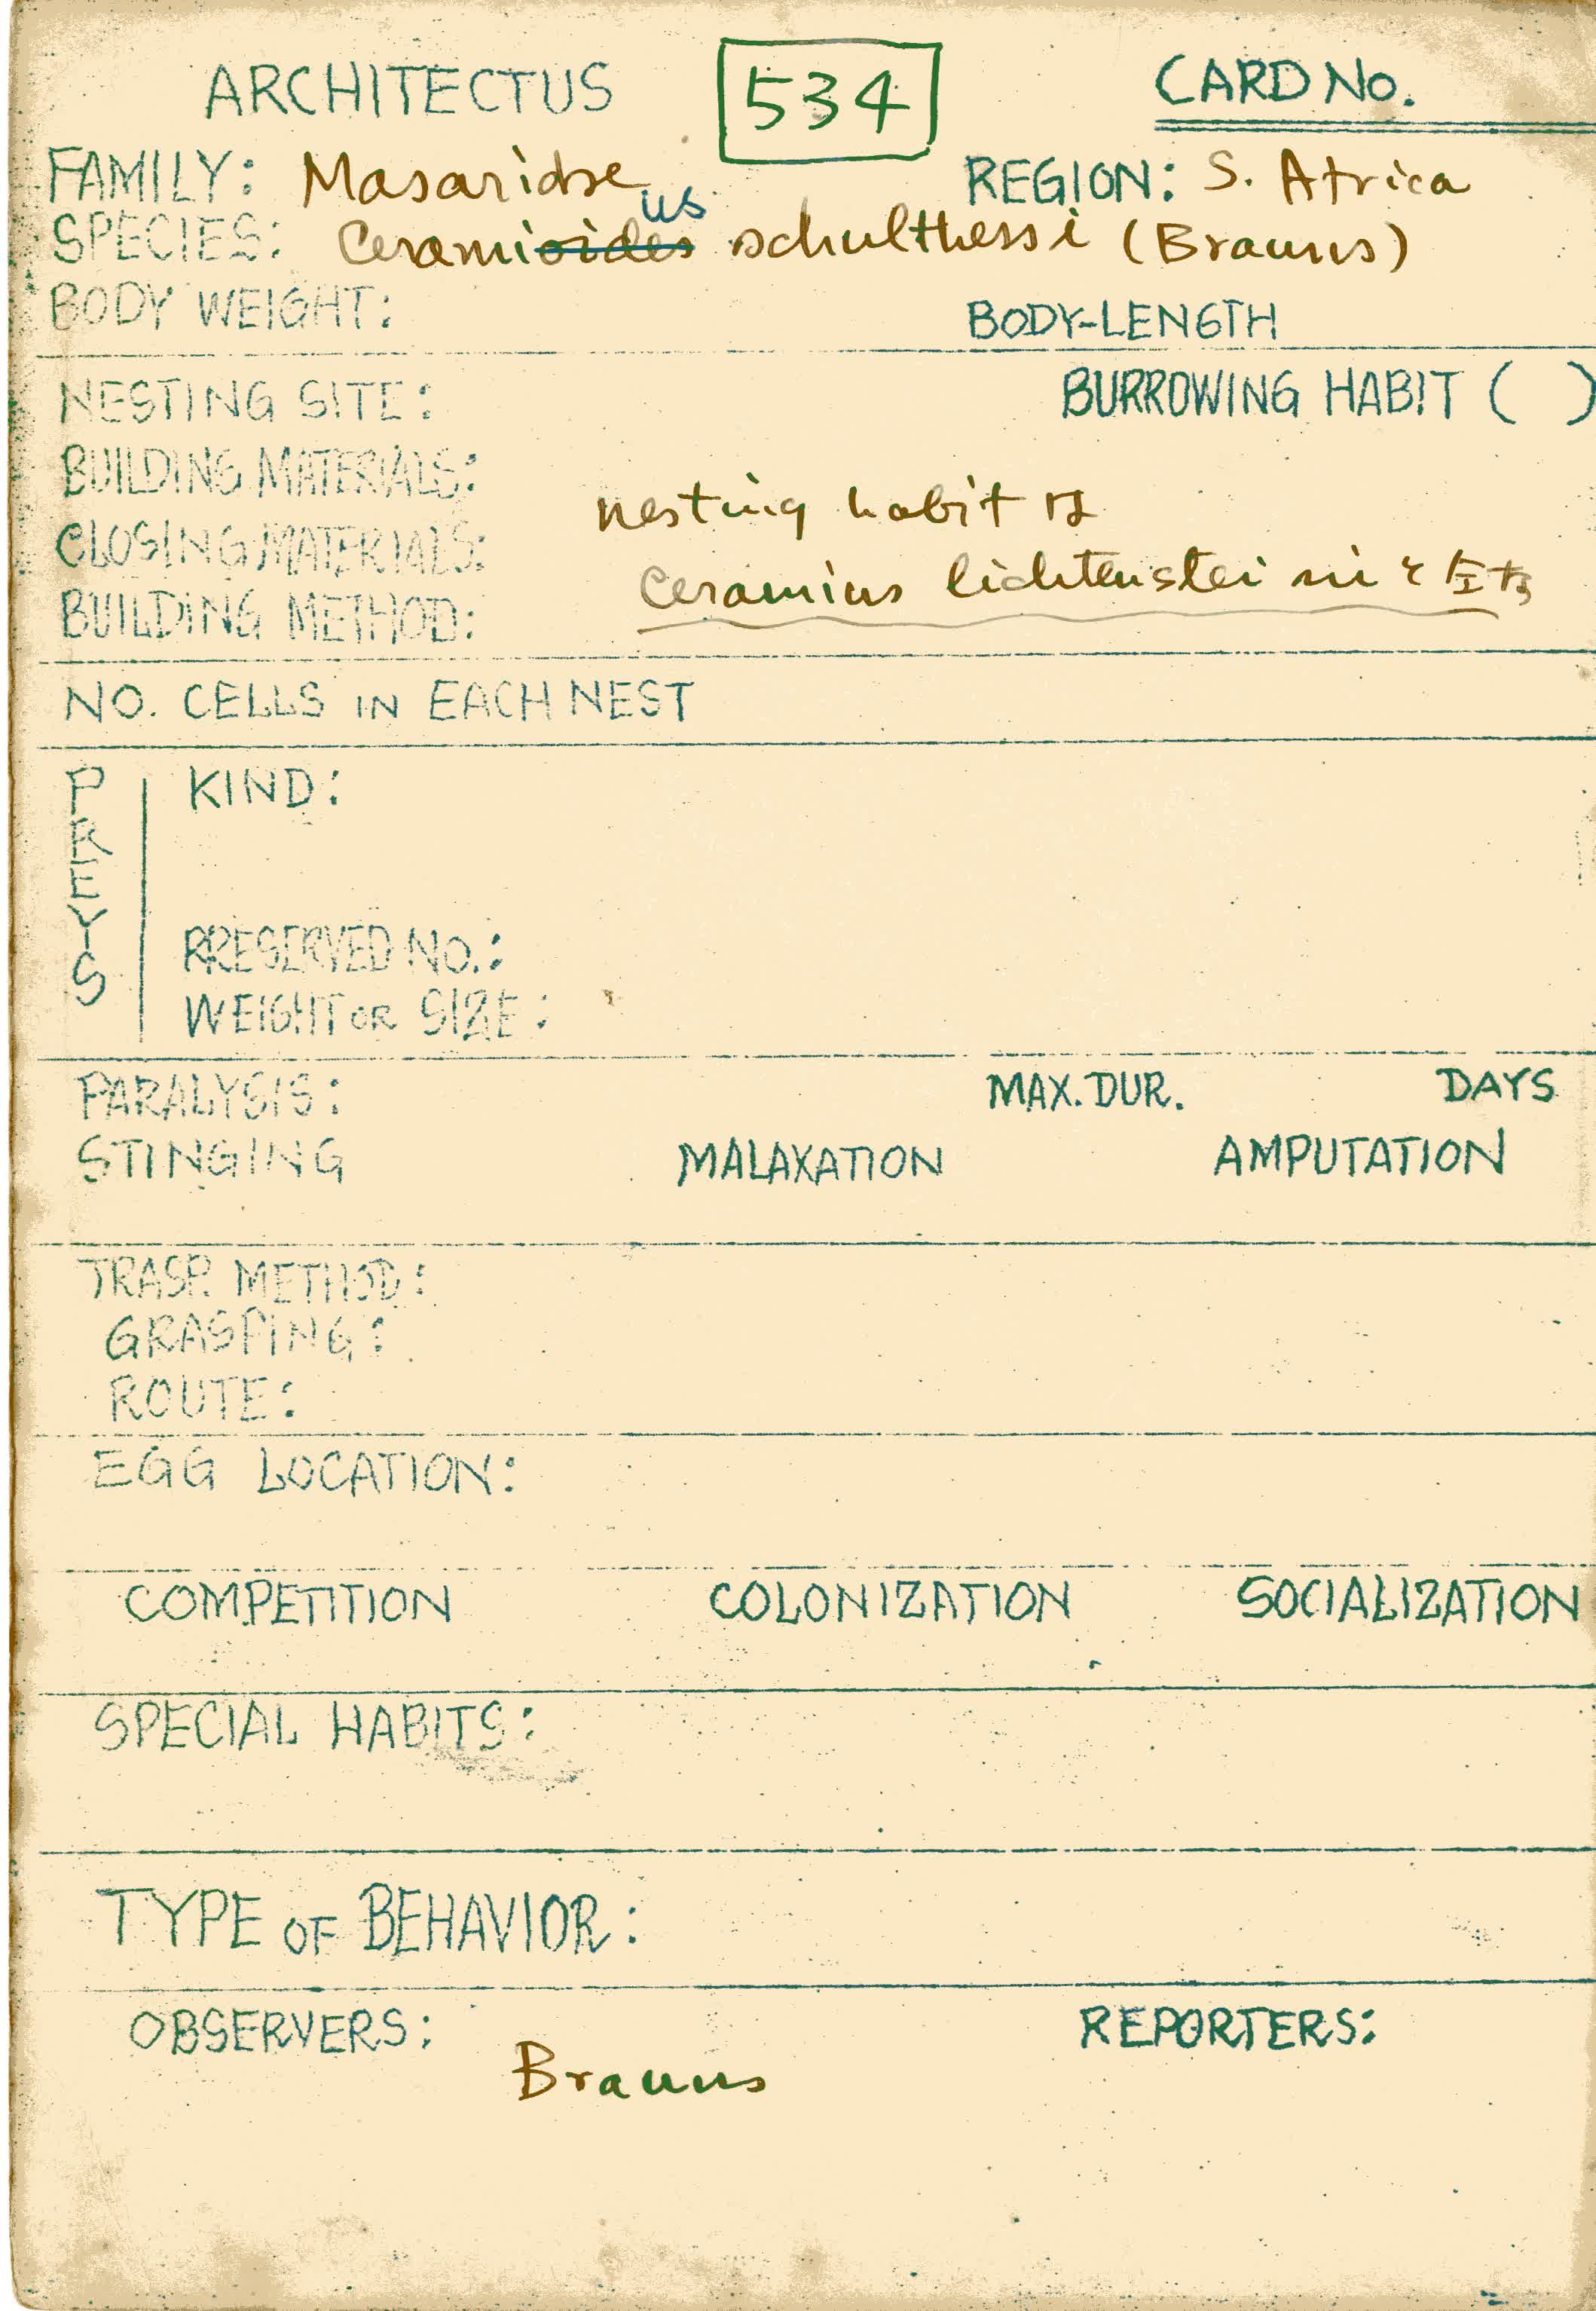 ARCHITECTUS 534 CARD NO.
FAMILY: Masaridae REGION: S. Africa
us
SPECIES: Ceramioides schulthessi (Brauns)
BODY WEIGHT: BODY-LENGTH
NESTING SITE: BURROWING HABIT ( )
BUILDING MATERIALS:
nesting habit は
CLOSING MATERIALS:
Ceramius lichtensteini
BUILDING METHOD:
NO. CELLS IN EACH NEST
PREYS
KIND:
PRESERVED NO.:
WEIGHT OR SIZE:
PARALYSIS: MAX. DUR. DAYS
STINGING MALAXATION AMPUTATION
TRASP. METHOD:
GRASPING:
ROUTE:
EGG LOCATION:
COMPETITION COLONIZATION SOCIALIZATION
SPECIAL HABITS:
TYPE OF BEHAVIOR:
OBSERVERS: REPORTERS:
Brauns